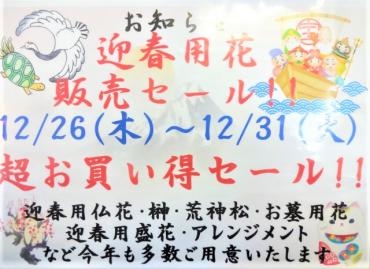 お知らせ
迎春用花
販売セール!!
12/26(木)～12/31(火)
超お買い得セール!!
迎春用仏花・榊・荒神松・お墓用花
迎春用盛花・アレンジメント
など今年も多数ご用意いたします